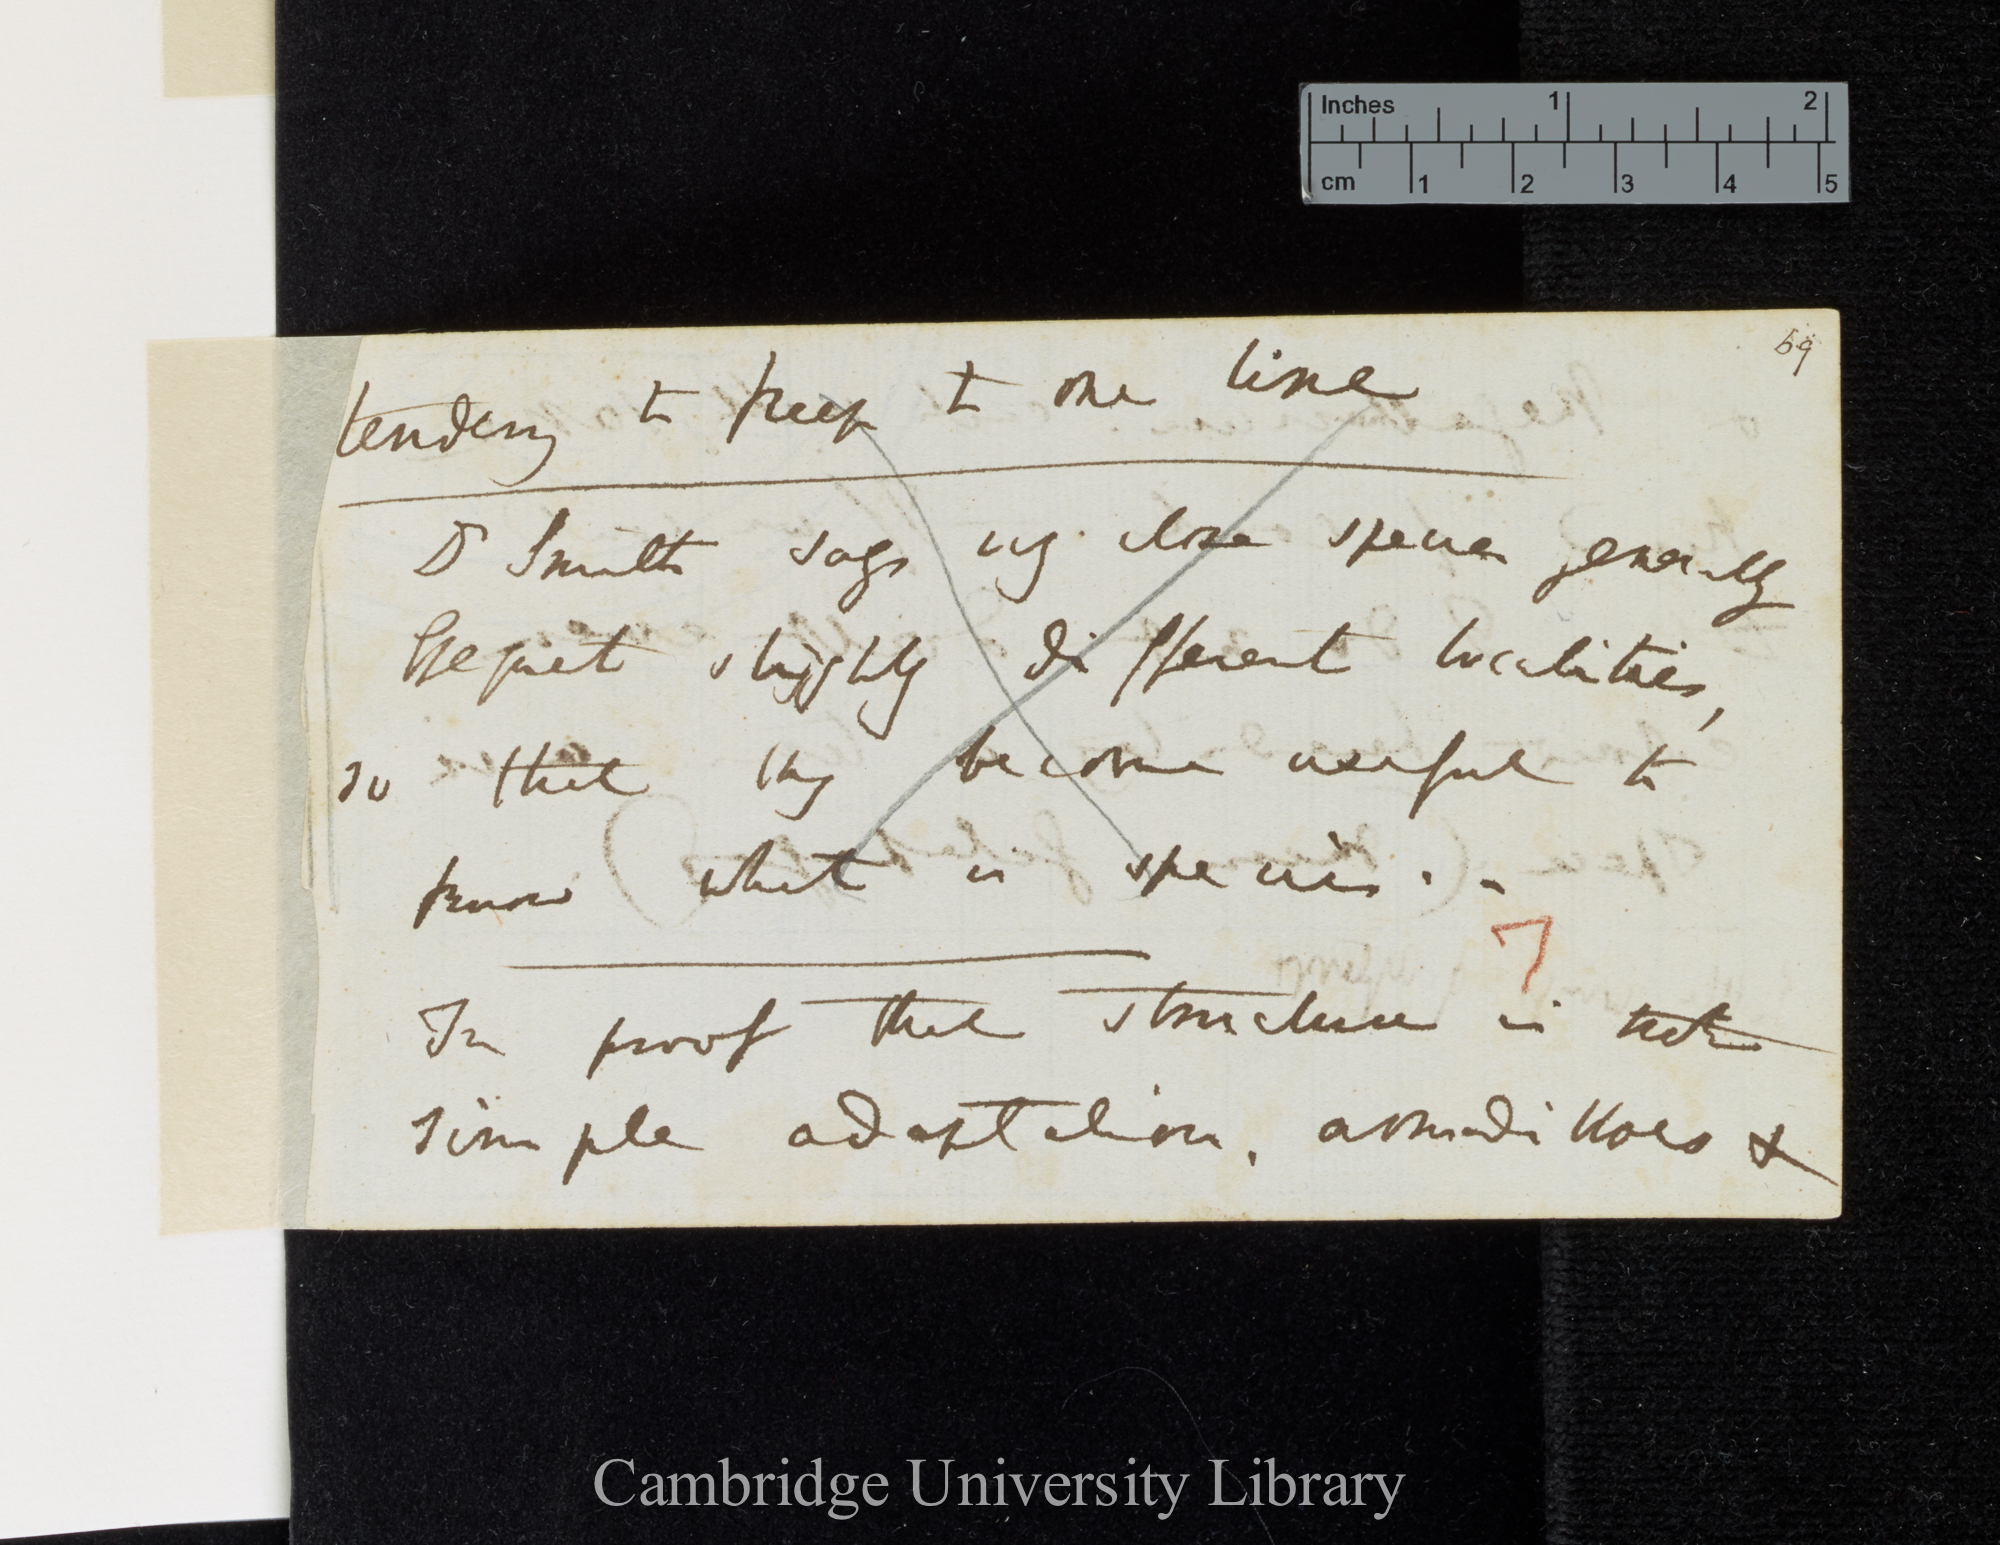 59
tendency to keep to one line
Dr Smith says very close species generally
frequent slightly different localities,
so that they become useful to
know what is species. -
In proof that structure is not
simple adaptation, armadilloes &
Inches 1 2
cm 1 2 3 4 5
Cambridge University Library